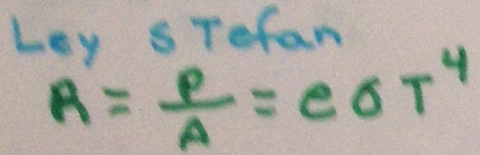 Ley STefan
R = P/A = e σ T⁴